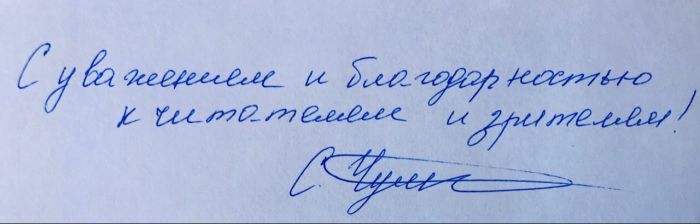 С уважением и благодарностью
к читателям и зрителям!
С.